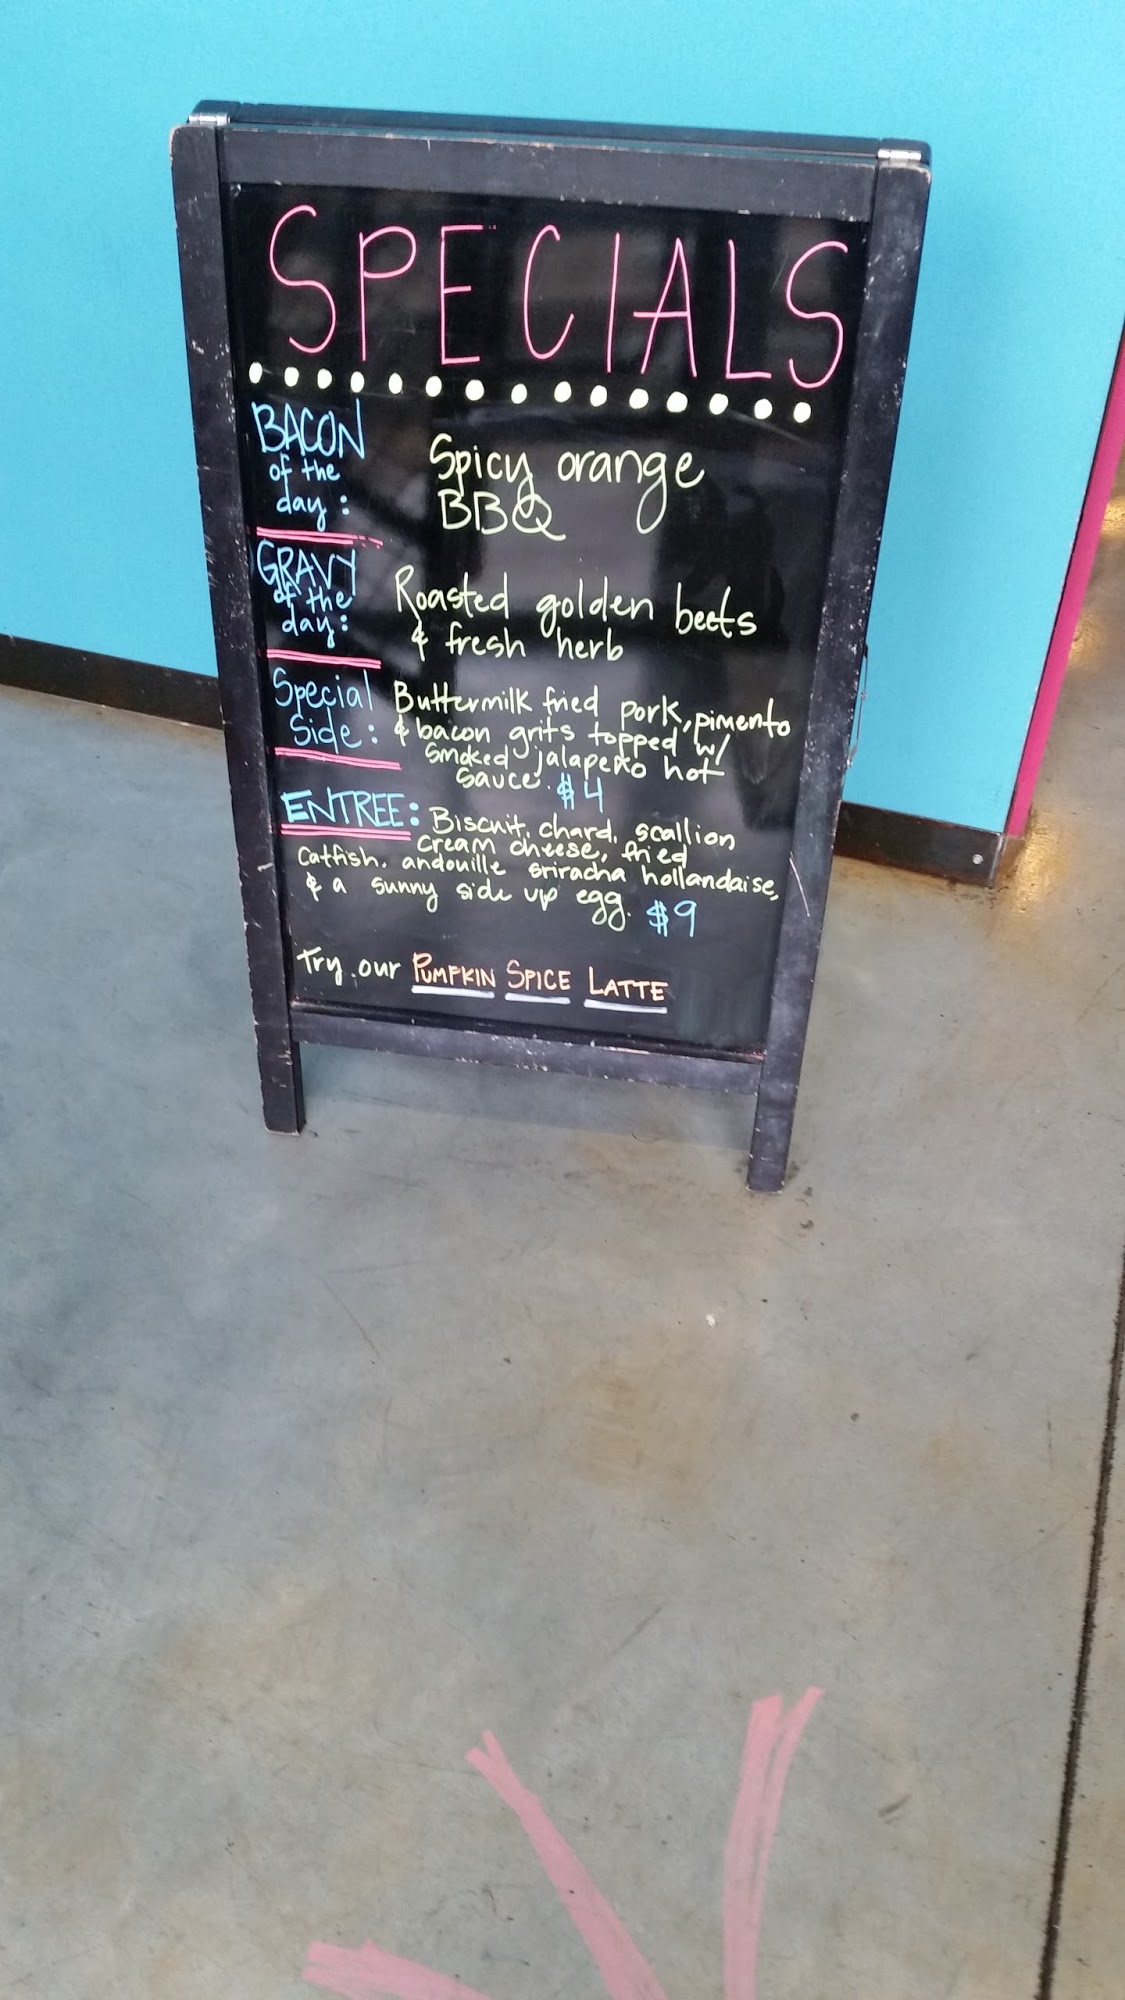 SPECIALS
BACON
of the
day:
Spicy orange
BBQ
GRAVY
of the
day:
Roasted golden beets
& fresh herb
Special
Side:
Buttermilk fried pork, pimento
& bacon grits topped w/
smoked jalapeño hot
sauce. $4
ENTREE: Biscuit, chard, scallion
cream cheese, fried
catfish, andouille sriracha hollandaise,
& a sunny side up egg. $9
Try our PUMPKIN SPICE LATTE